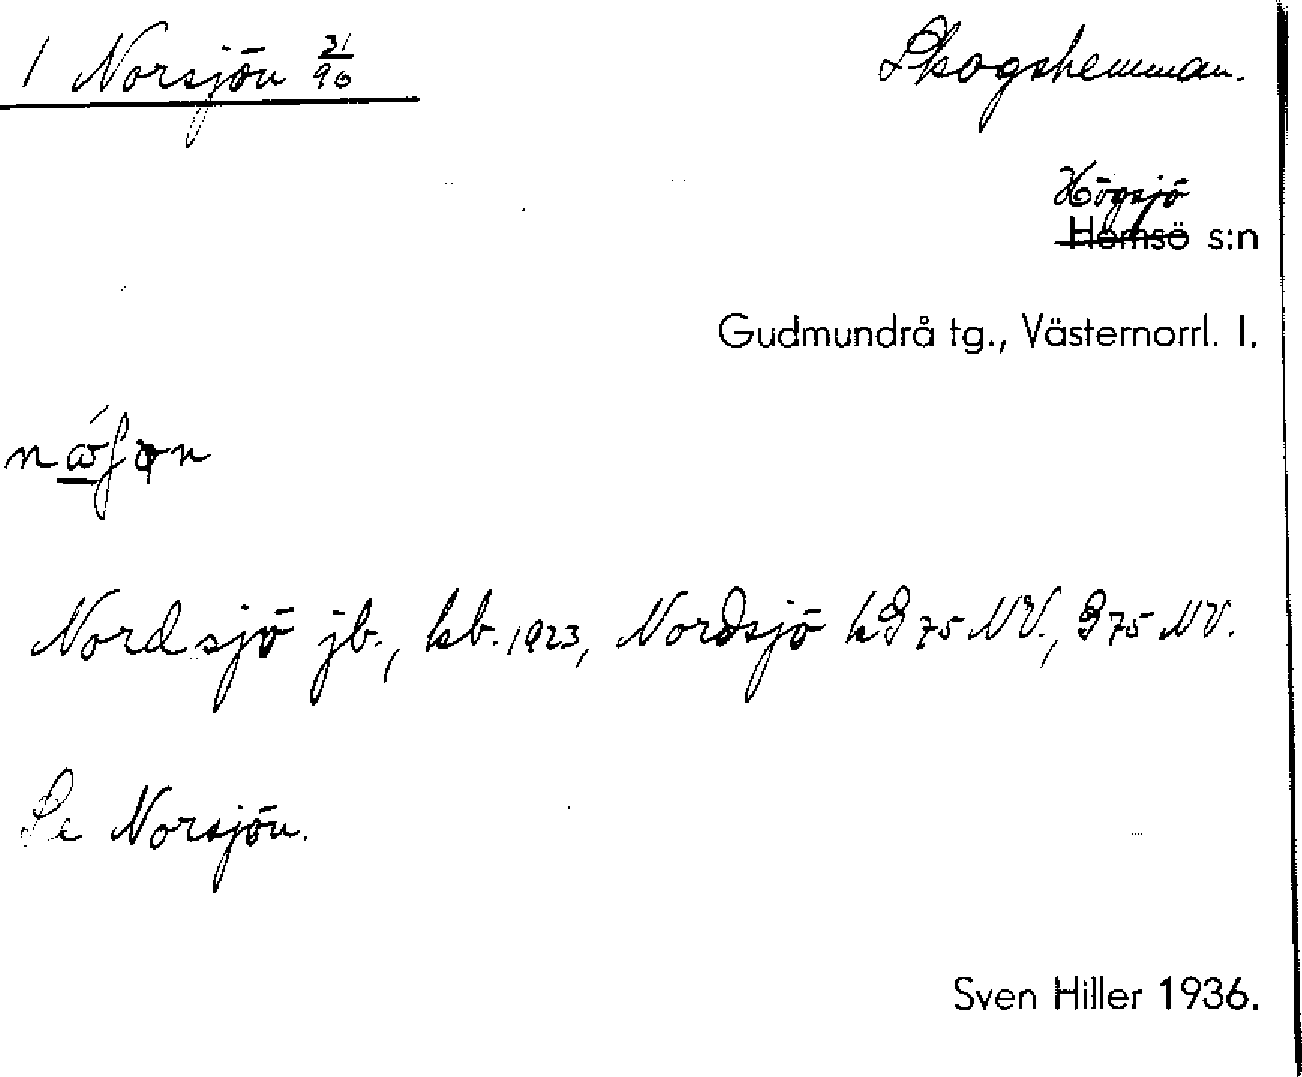 1 Norsjön 21/96 Skogshemman.
Högsjö
Hemsö s:n
Gudmundrå tg., Västernorrl. l.
Nordsjö jb., kb. 1923, Nordsjö kG 75 NV., G 75 NV.
Se Norsjön.
Sven Hiller 1936.